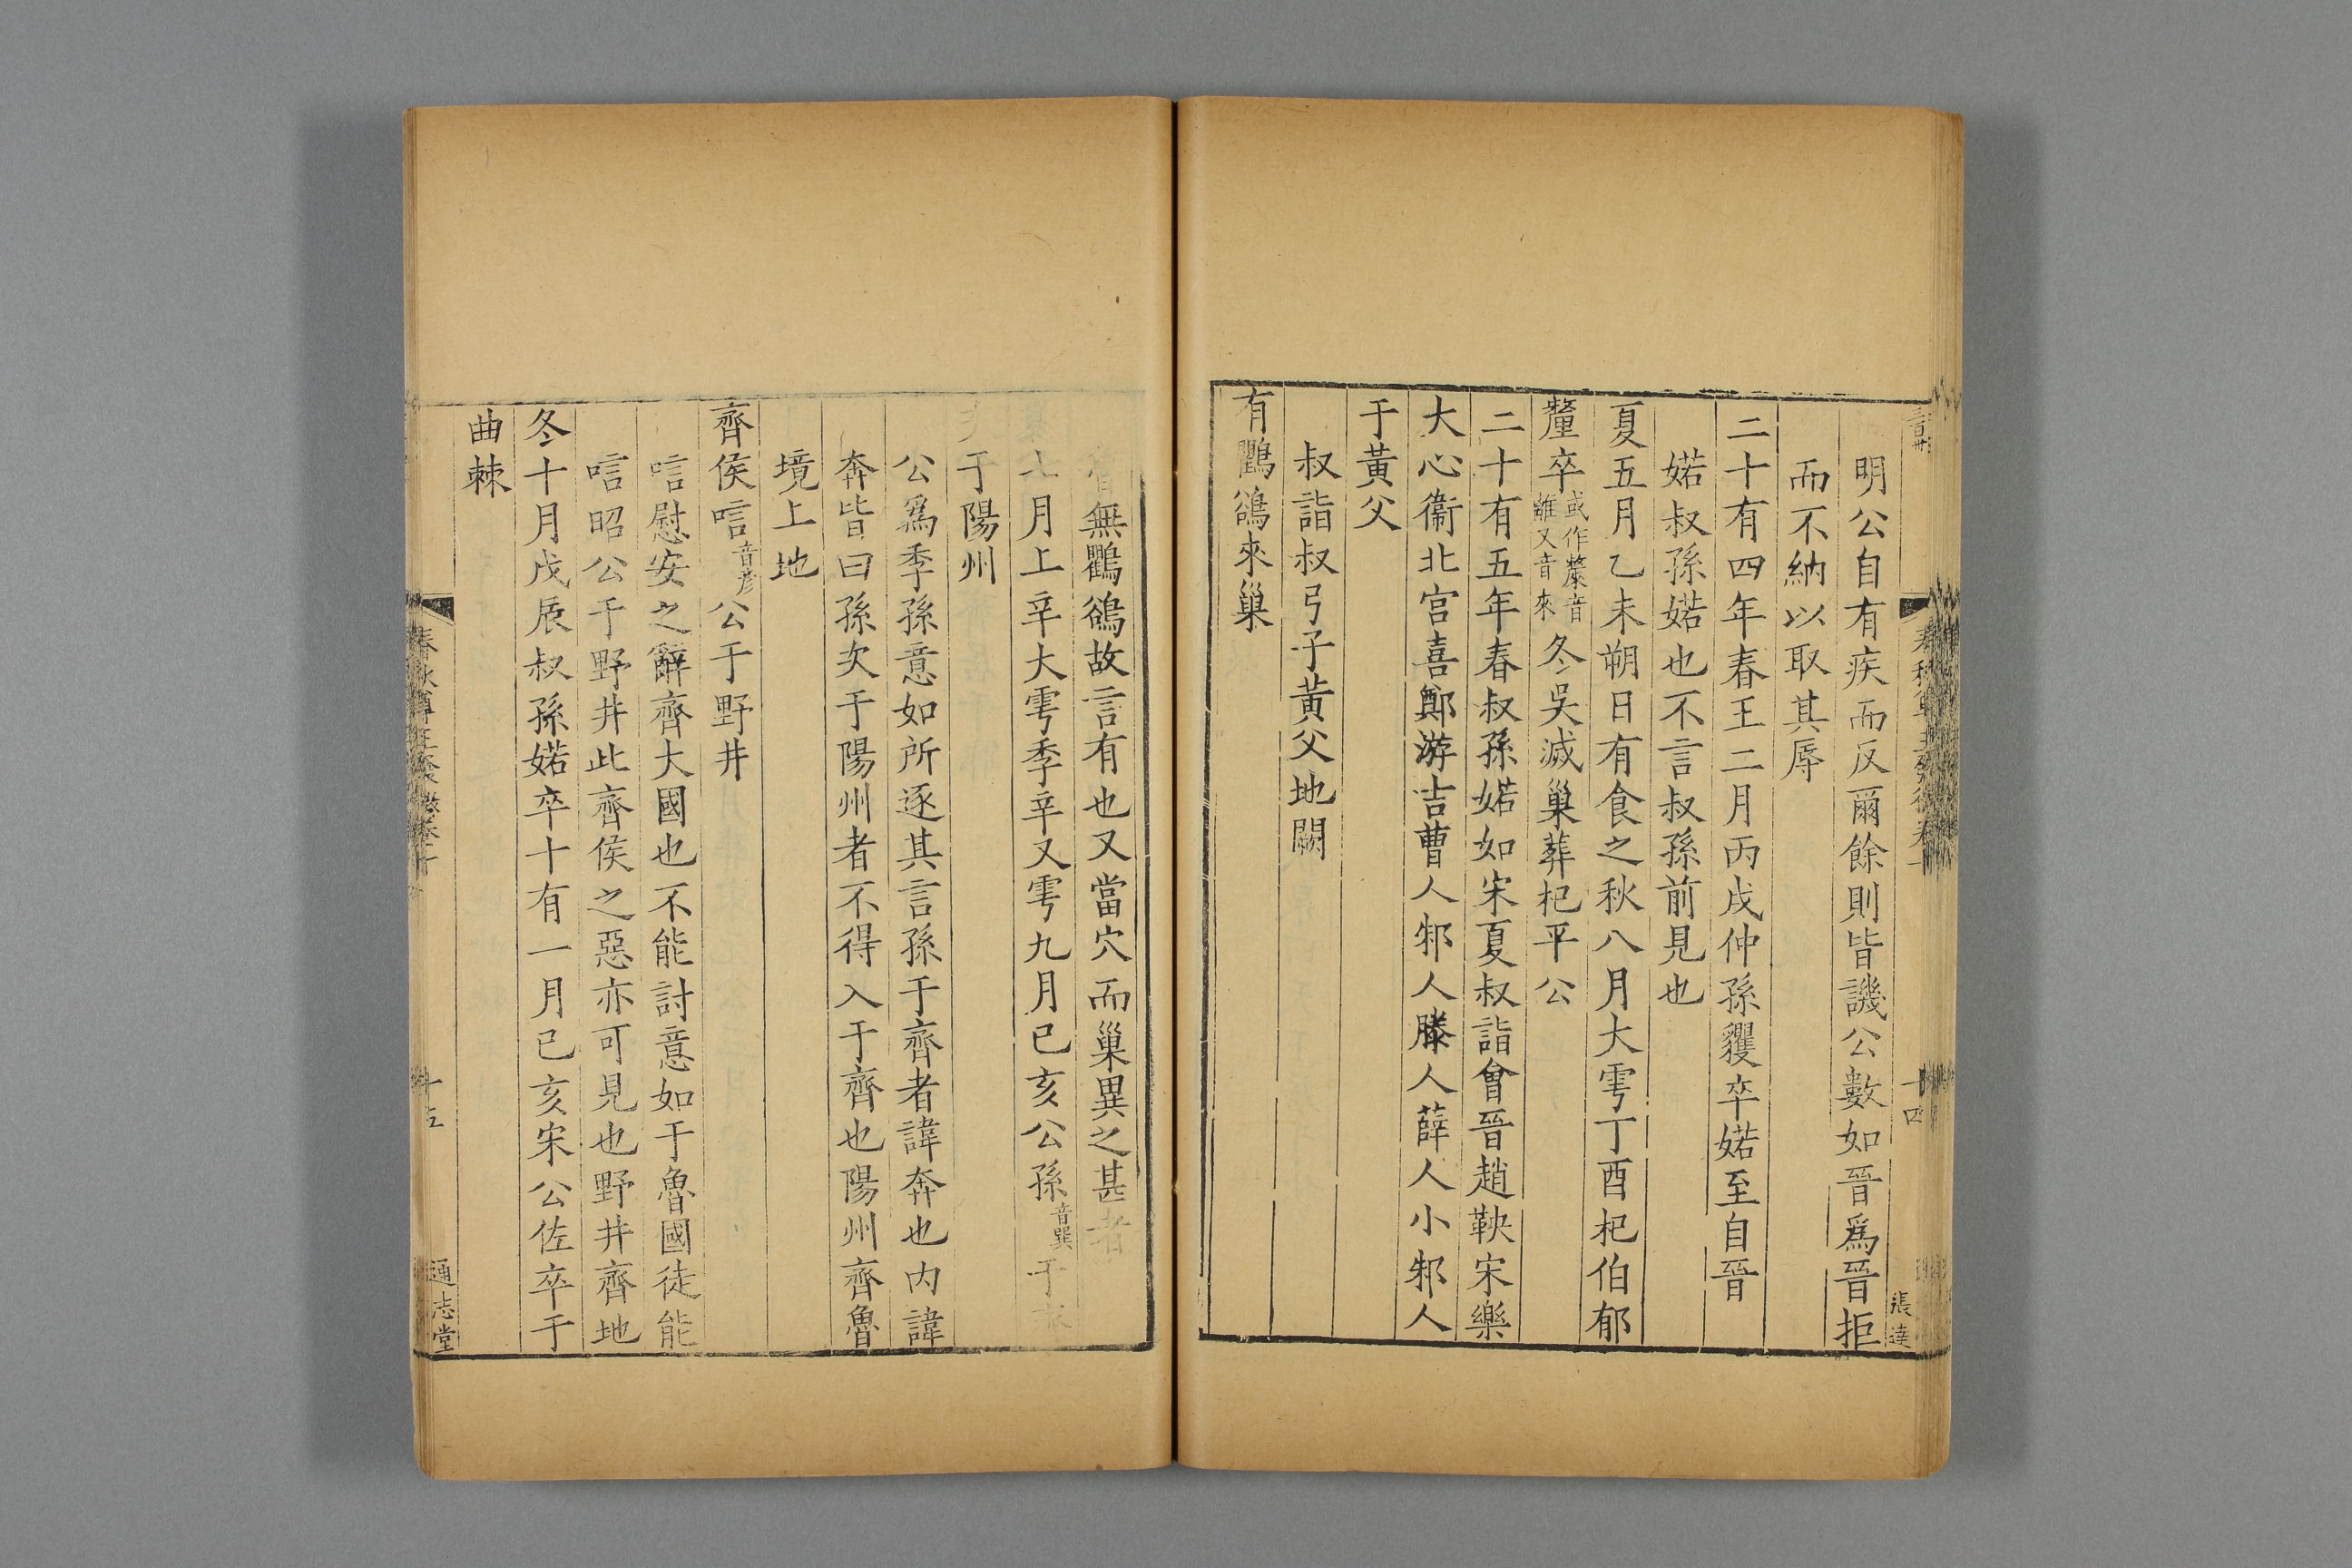 明公自有疾而反爾餘則皆譏公數如晉爲晉拒
而不納以取其辱
二十有四年春王二月丙戌仲孫貜卒婼至自晉
婼叔孫婼也不言叔孫前見也
夏五月乙未朔日有食之秋八月大雩丁酉杞伯郁
釐卒或作斄音離又音來冬吳滅巢葬杞平公
二十有五年春叔孫婼如宋夏叔詣會晉趙鞅宋樂
大心衞北宮喜鄭游吉曹人邾人滕人薛人小邾人
于黃父
叔詣叔弓子黃父地闕
有鸜鵒來巢
十四
張達
魯無鸜鵒故言有也又當穴而巢異之甚者
七月上辛大雩季辛又雩九月已亥公孫音巽于
于陽州
公爲季孫意如所逐其言孫于齊者諱奔也内諱
奔皆曰孫次于陽州者不得入于齊也陽州齊魯
境上地
齊侯唁音彦公于野井
唁慰安之辭齊大國也不能討意如于魯國徒能
唁昭公于野井此齊侯之惡亦可見也野井齊地
冬十月戊辰叔孫婼卒十有一月已亥宋公佐卒于
曲棘
十五
通志堂